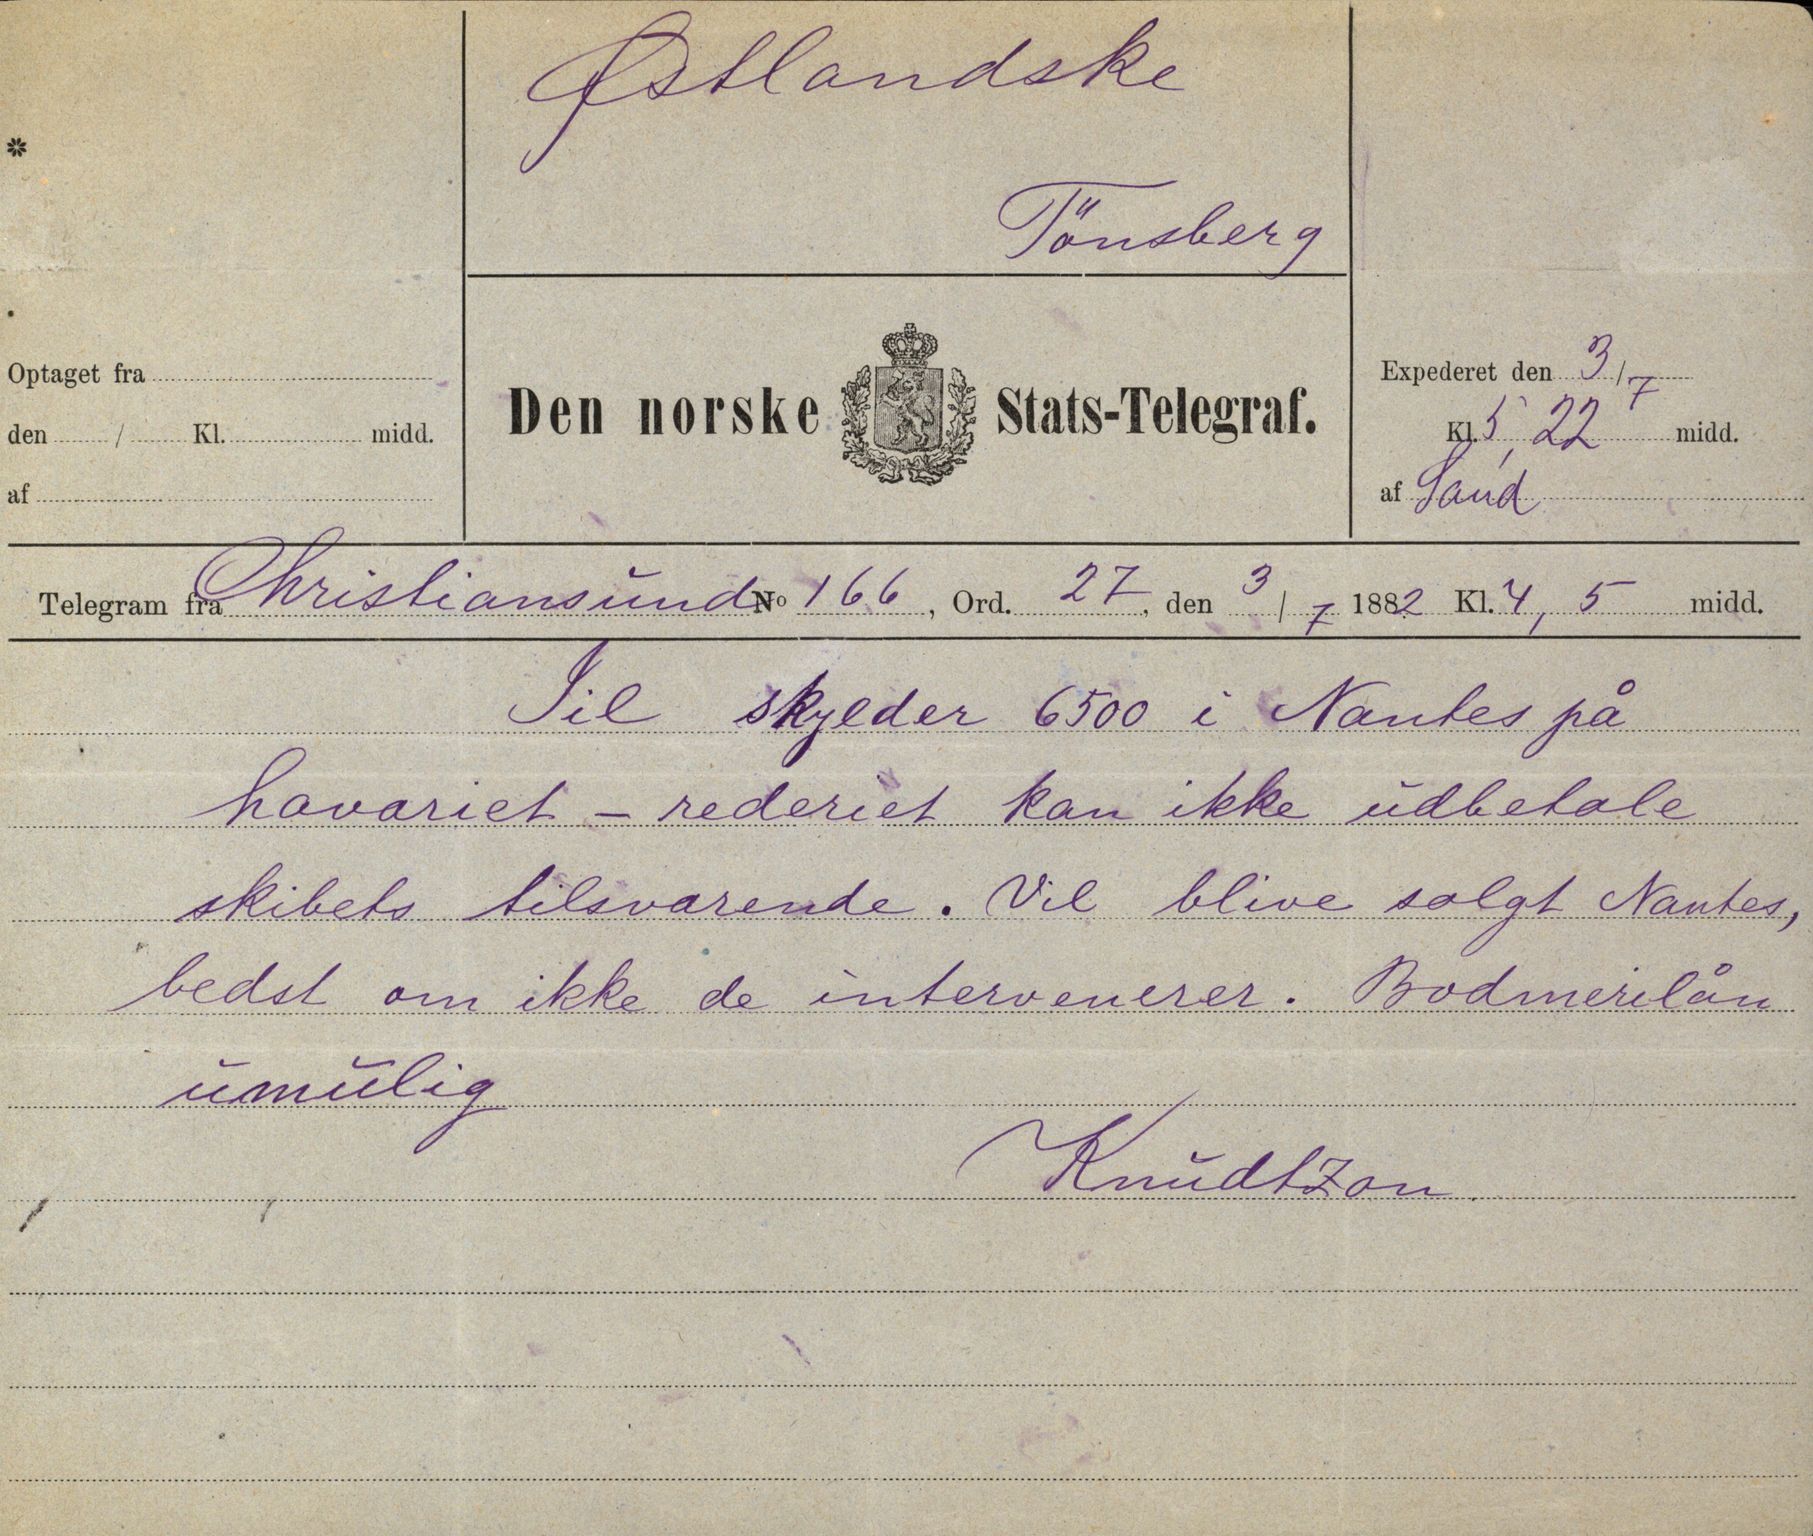 Østlandske
Tönsberg
*
Optaget fra
den / Kl. midd.
af
Den norske Stats-Telegraf.
Expederet den 3/7
Kl. 5,22 midd.
af Sand
Telegram fra Christiansund No 166, Ord. 27, den 3/7 1882 Kl. 4,5 midd.
Iil skylder 6500 i Nantes på
havariet - rederiet kan ikke udbetale
skibets tilsvarende. Vil blive solgt Nantes,
bedst om ikke de intervenerer. Bodmerilån
umulig
Knudtzon